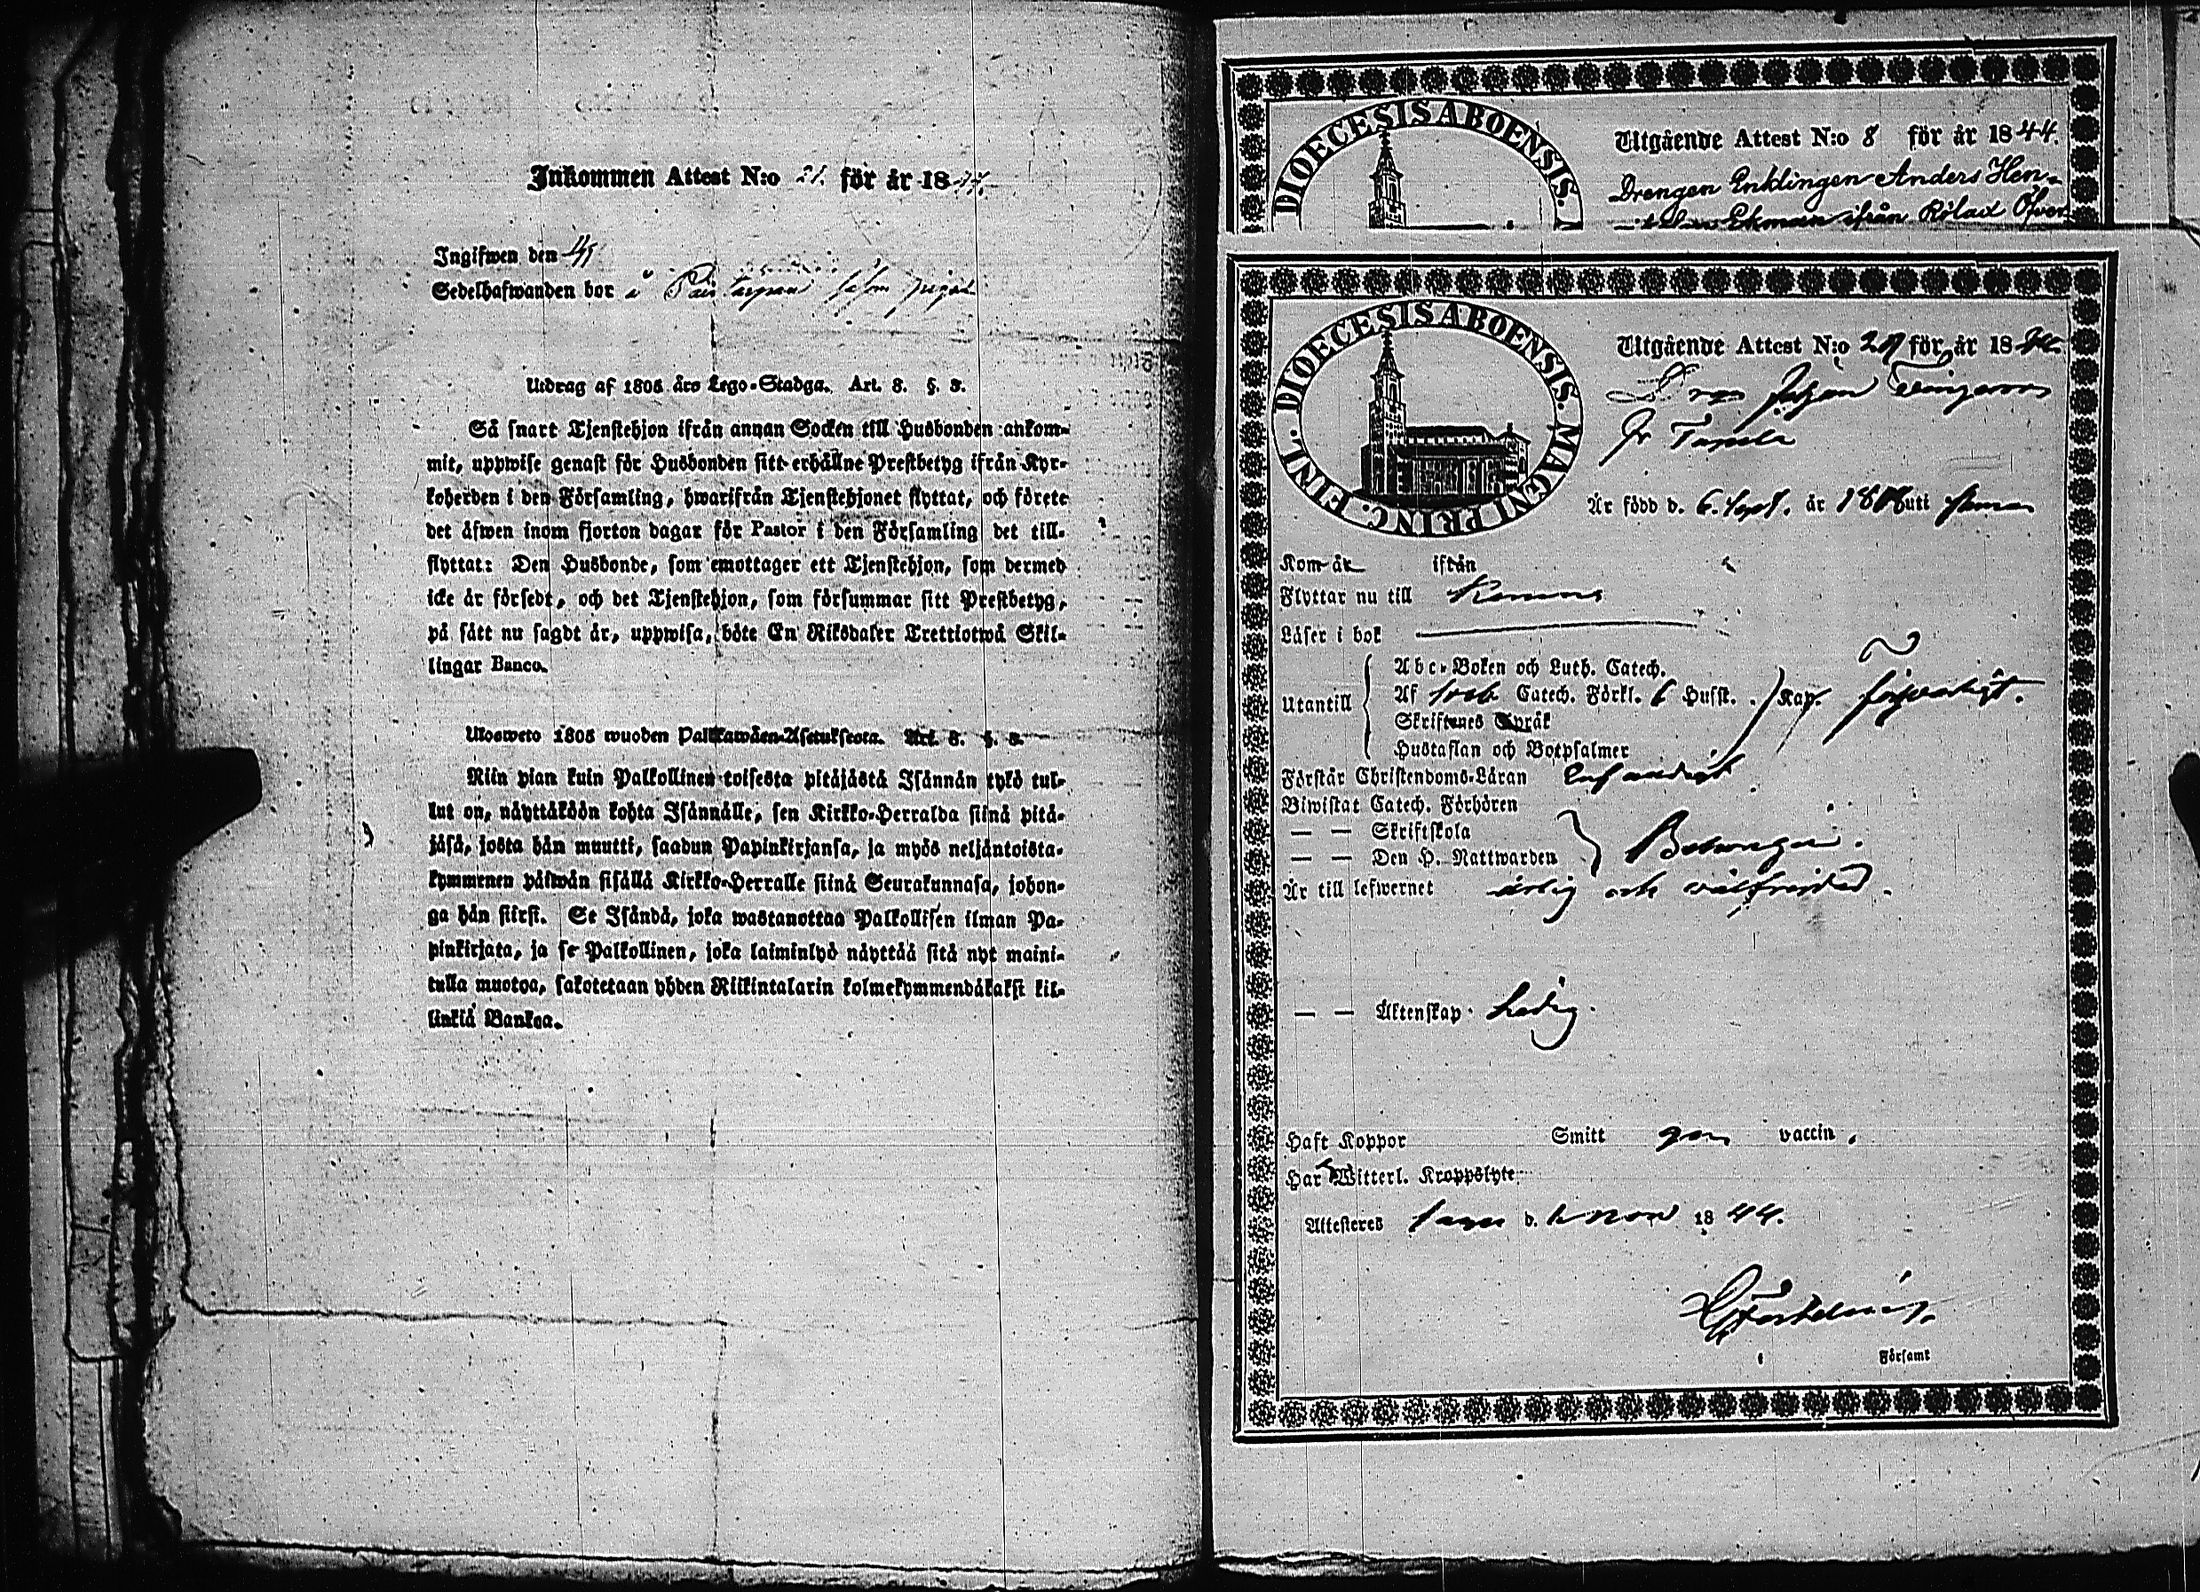 Inkommen Attest N:o 21. för år 1844.
Ingifwen den
Sedelhafwanden bor å
Utdrag af 1805 års Lego-Stadga. Art. 8. §. 3.
Så snart Tjenstehjon ifrån annan Socken till Husbonden ankom-
mit, uppwise genast för Husbonden sitt erhållne Prestbetyg ifrån Kyr-
koherden i den Församling, hwarifrån Tjenstehjonet flyttat, och förete
det äfwen inom fjorton dagar för Pastor i den Församling det till-
flyttat: Den Husbonde, som emottager ett Tjenstehjon, som dermed
icke är försedt, och det Tjenstehjon, som försummar sitt Prestbetyg,
på sätt nu sagdt är, uppwisa, böte En Riksdaler Trettiotwå Skil-
lingar Banco.
Ulosweto 1805 wuoden Palkkawäen-Asetuksesta. Art. 8. §. 3.
Niin pian kuin Palkollinen toisesta pitäjästä Isännän tykö tul-
lut on, näyttäköön kohta Isännälle, sen Kirkko-Herralda siinä pitä-
jäsä, josta hän muutti, saadun Papinkirjansa, ja myös neljäntoista-
kymmenen päiwän sisällä Kirkko-Herralle siinä Seurakunnasa, johon-
ga hän siirst. Se Isändä, joka wastanottaa Palkollisen ilman Pa-
pinkirjata, ja se Palkollinen, joka laiminlyö näyttää sitä nyt maini-
tulla muotoa, sakotetaan yhden Riikintalarin kolmekymmendäkaksi kil-
linkiä Bankoa.
DIOECESIS ABOENSIS.
Utgående Attest N:o 8 för år 1844.
Drengen Enklingen Anders Hen-
Ekman ifrån Öfver
DIOECESIS ABOENSIS. MAGNI PRINC. FINL.
Utgående Attest N:o för år 1844.
Johan
Är född d. 6. Sept. år 18 uti
Kom år ifrån
Flyttar nu till
Läser i bok
Utantill
Abc-Boken och Luth. Catech.
Af Catech. Förkl. 6 Husst. Kap.
Skriftenes Språk
Hustaflan och Botpsalmer
Förstår Christendoms-Läran
Biwistat Catech. Förhören
— — Skriftskola
— — Den H. Nattwarden
Är till lefwernet ärlig och välfrejdad.
— — Äktenskap Ledig.
Haft Koppor Smitt gm vaccin.
Har Witterl. Kroppslyte
Attesteres d. Nov 1844.
i Församl